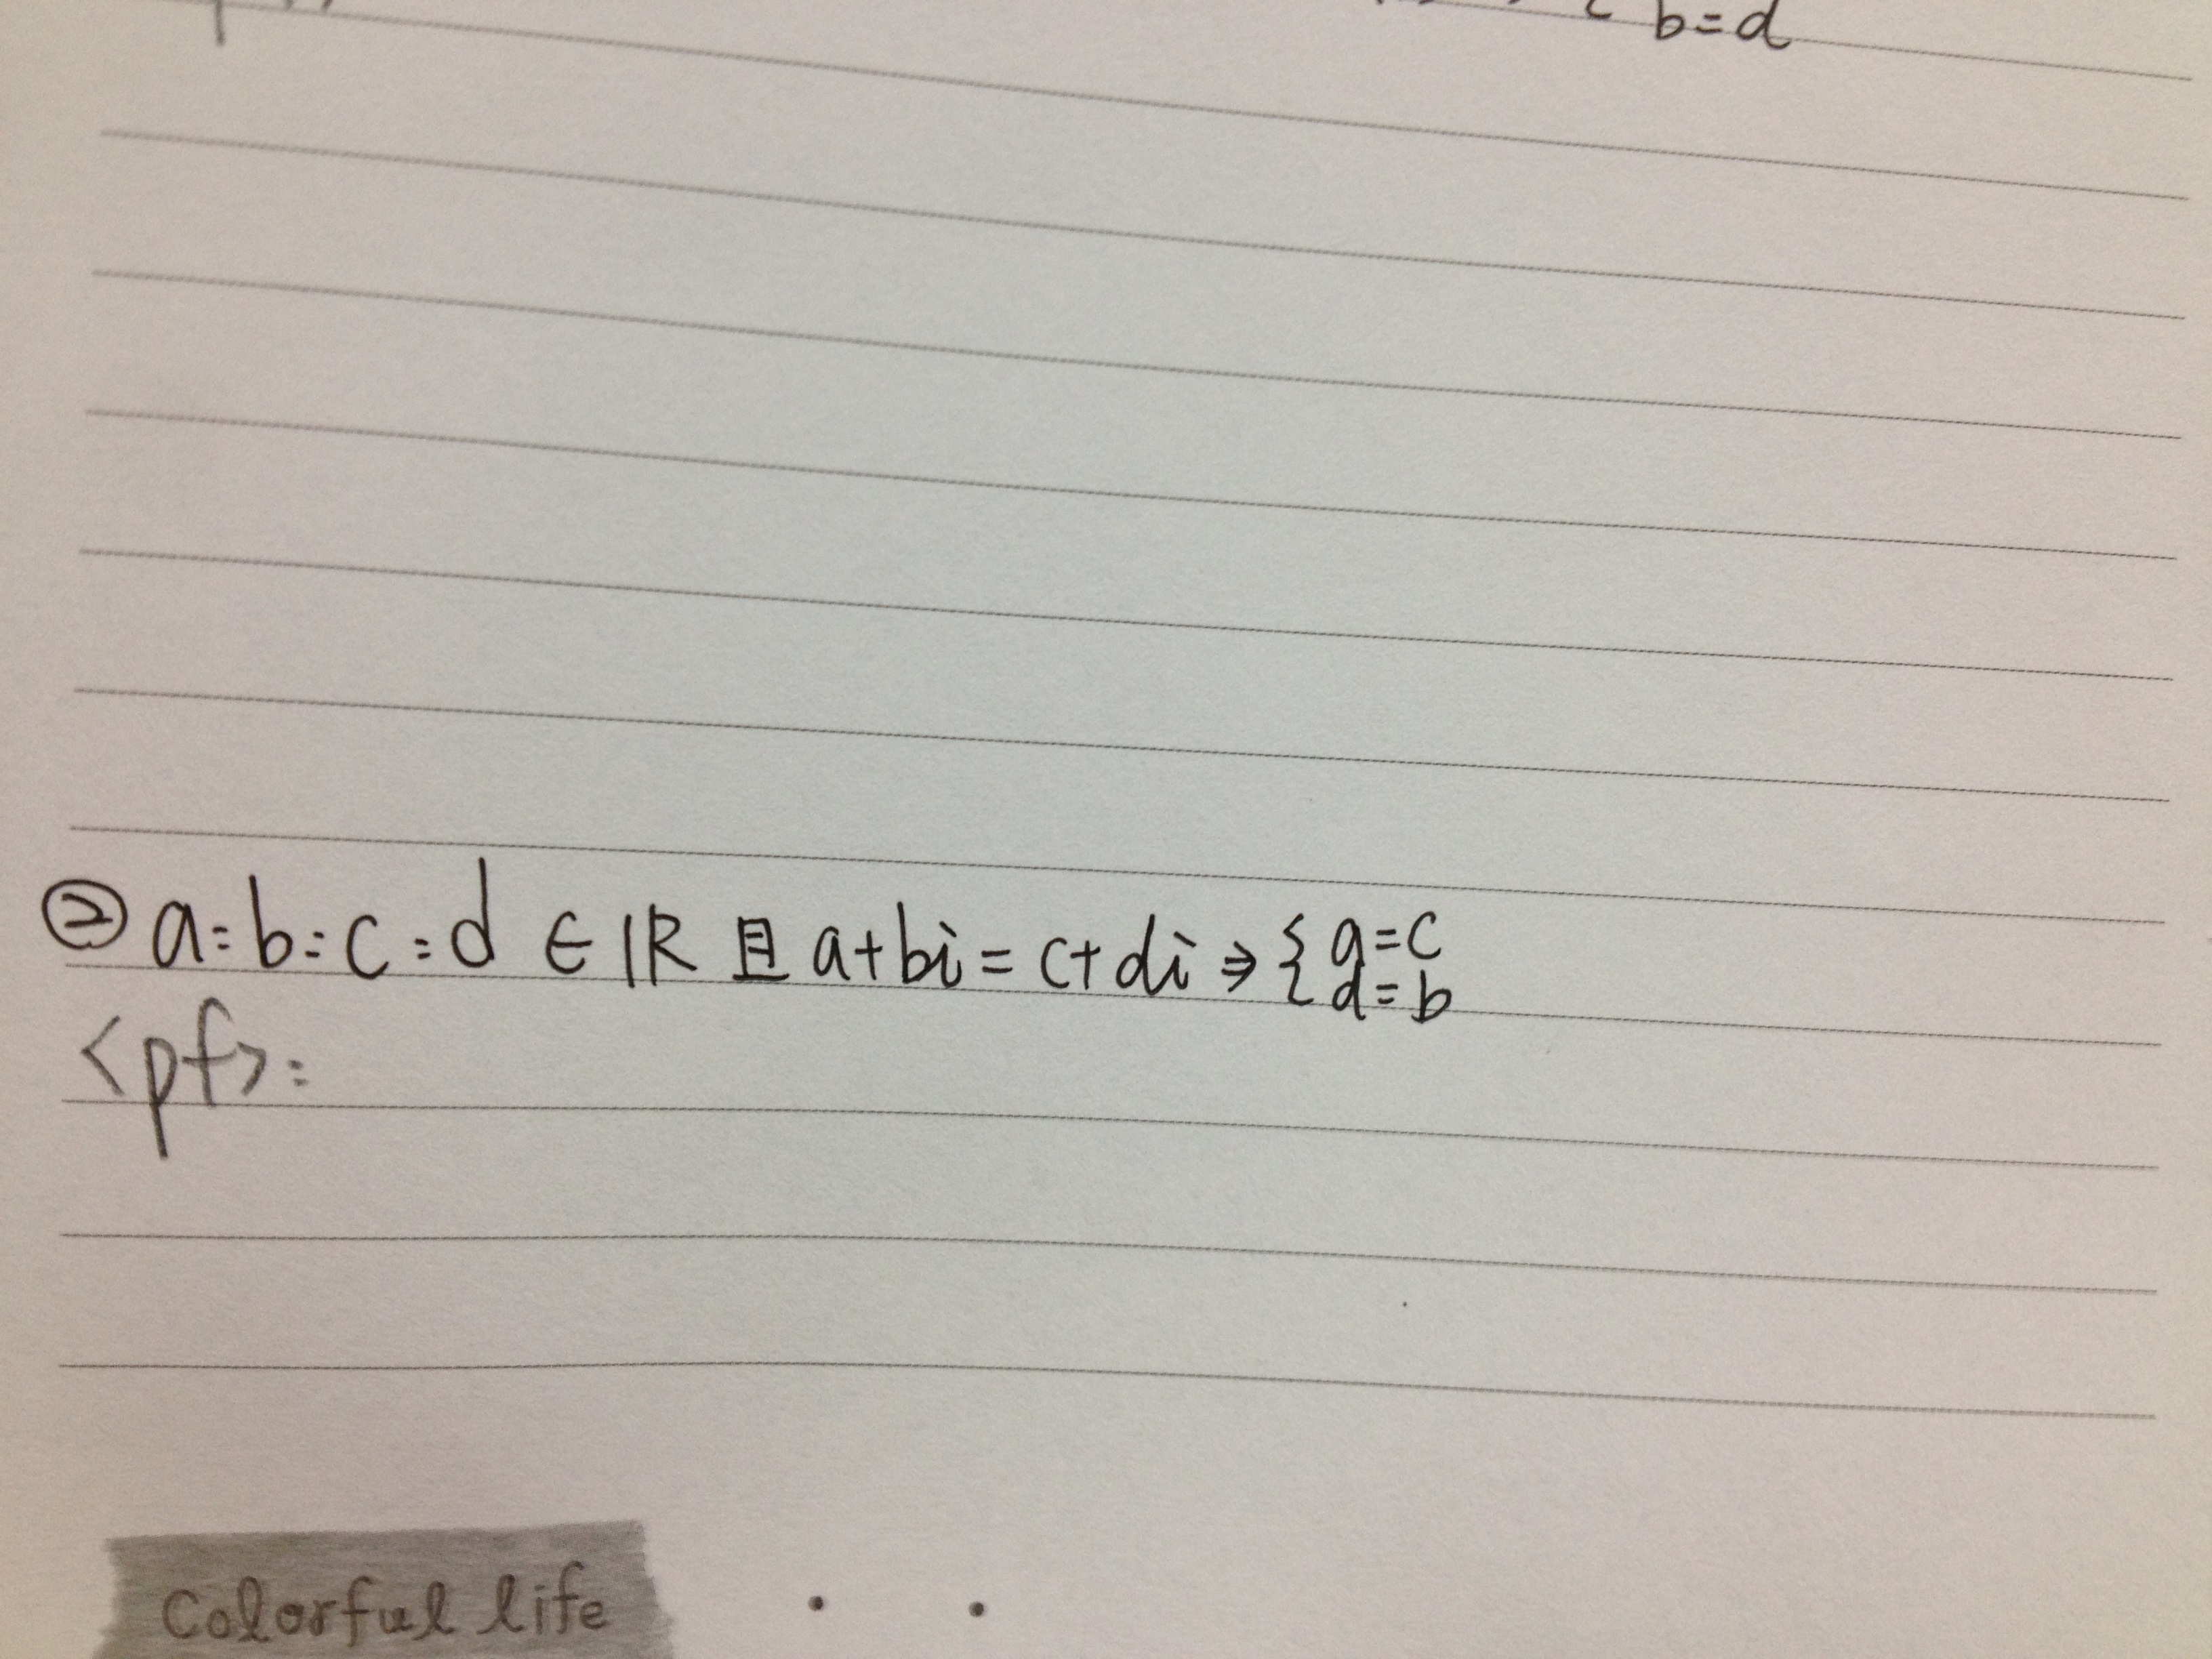 b=d
② a=b=c=d ∈ IR 且 a+bi = c+di ⇒ { a=c
d=b
<pf>:
Colorful life